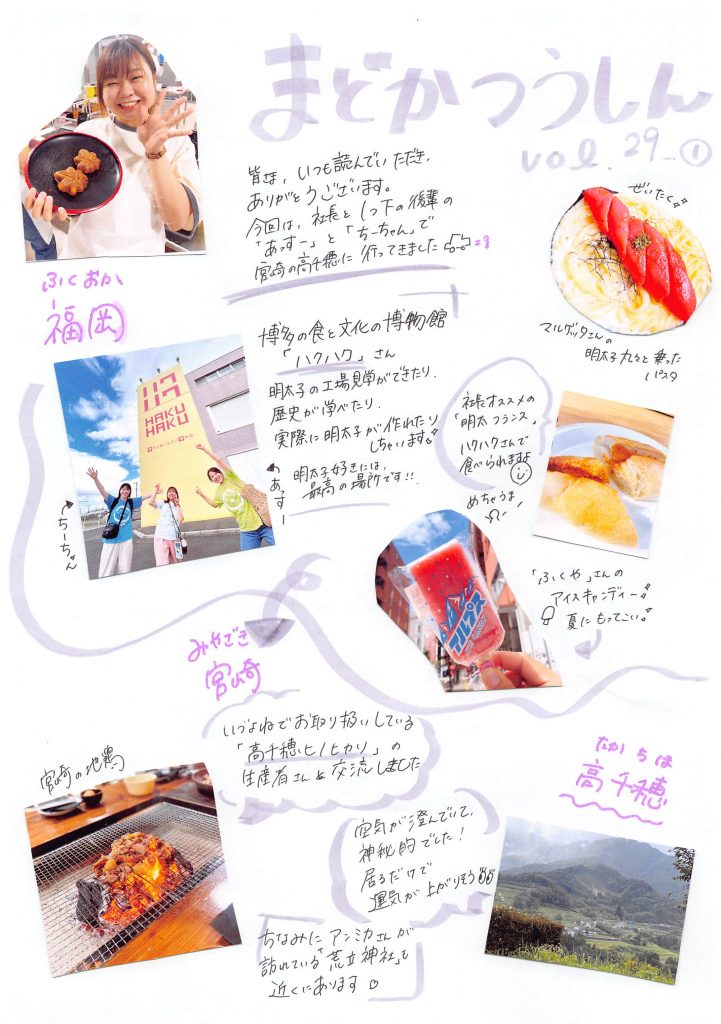 まどかつうしん
vol. 29-①
皆さま、いつも読んでいただき、
ありがとうございます。
今回は、社長と1つ下の後輩の
「あっすー」と「ちーちゃん」で
宮崎の高千穂に行ってきました
ぜいたく
マルゲッタさんの
明太子丸々と乗った
パスタ
ふくおか
福岡
博多の食と文化の博物館
「ハクハク」さん
明太子の工場見学ができたり、
歴史が学べたり、
実際に明太子が作れたり
しちゃいます!
明太子好きには、
最高の場所です!!
ハク
HAKU
HAKU
←あっすー
←ちーちゃん
社長オススメの
「明太フランス」
ハクハクさんで
食べられますよ
めちゃうま
「ふくや」さんの
アイスキャンディー!
夏にもってこい!
みやざき
宮崎
いづよねでお取り扱いしている
「高千穂ヒノヒカリ」の
生産者さんと交流しました
宮崎の地鶏
たかちほ
高千穂
空気が澄んでいて、
神秘的でした!
居るだけで
運気が上がりそう
ちなみにアンミカさんが
訪れている「荒立神社」も
近くにあります